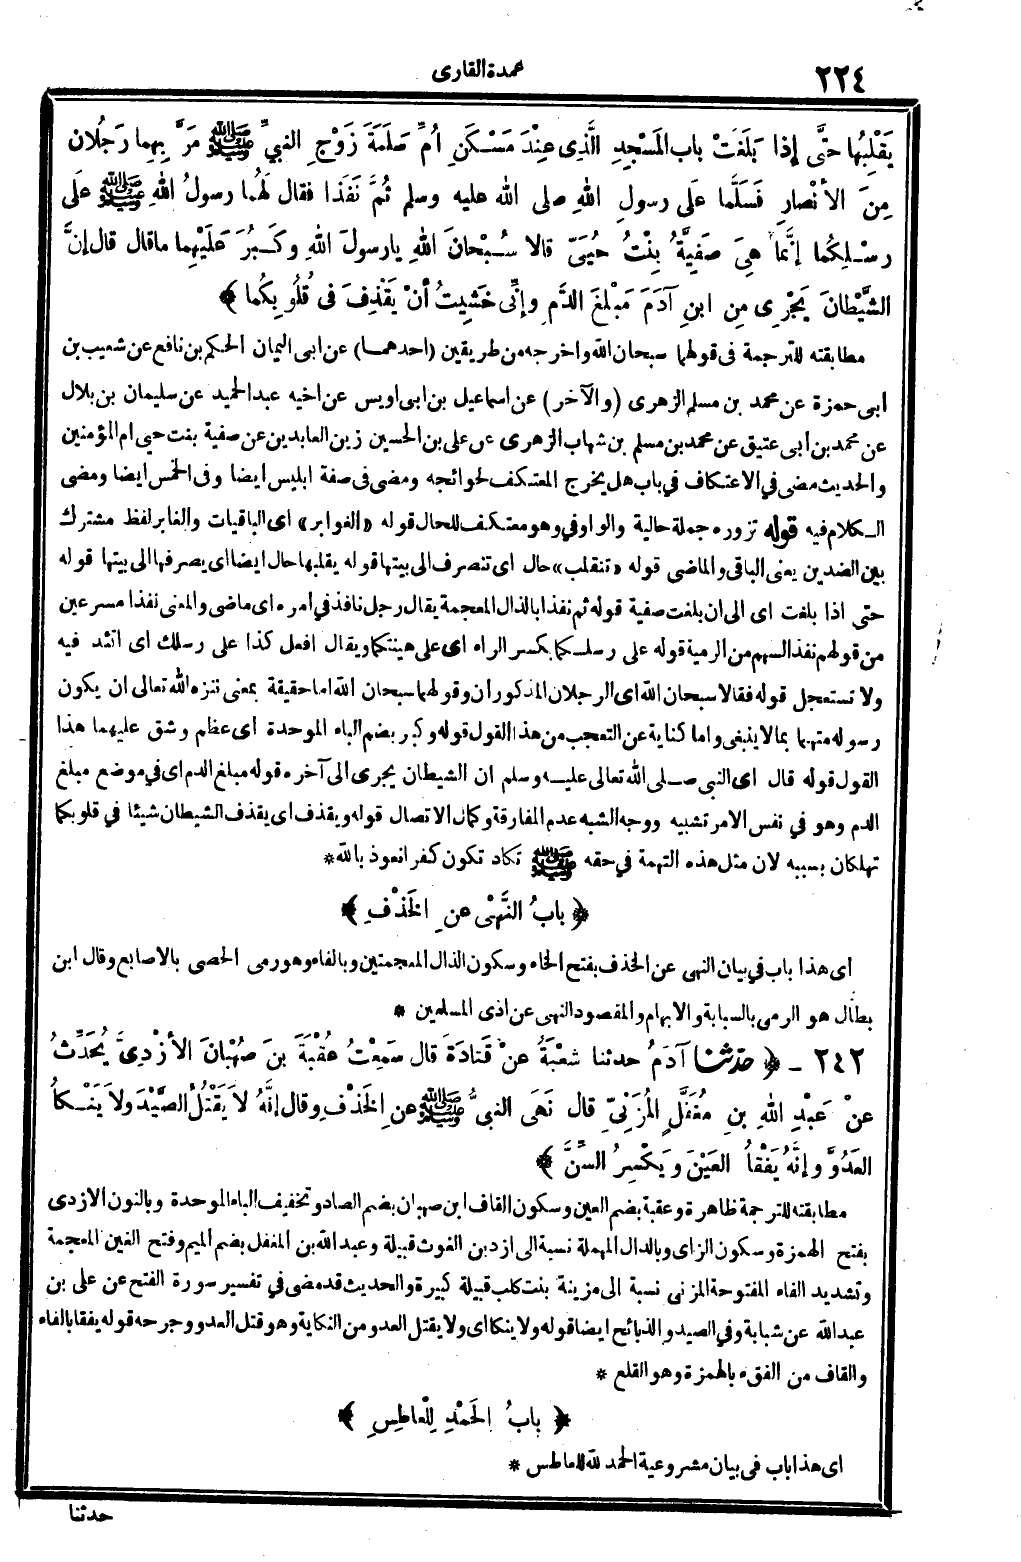 ٢٢٤
عمدة القارى
يَقْلِبُها حتَّى إذا بَلَغَتْ بابَ المَسْجِدِ الَّذِى عِنْدَ مَسْكَنِ أُمِّ سَلَمَةَ زَوْجِ النبيِّ ﷺ مَرَّ بِهِما رَجُلانِ
مِنَ الأنْصارِ فَسَلَّما عَلَى رسولِ اللهِ صلى الله عليه وسلم ثُمَّ نَفَذَا فقال لَهُما رسولُ اللهِ ﷺ عَلَى
رِسْلِكُما إنَّما هِىَ صَفِيَّةُ بِنْتُ حُيَىّ قالا سُبْحانَ اللهِ يارسولَ اللهِ وكَبُرَ عَلَيْهِما ماقال قال إنَّ
الشَّيْطانَ يَجْرِى مِنِ ابنِ آدَمَ مَبْلغَ الدَّمِ وإنِّى خَشِيتُ أنْ يَقْذِفَ فى قُلُوبِكُما ﴾
مطابقته للترجمة فى قولهما سبحان الله واخرجه من طريقين (احدهما) عن ابى اليمان الحكم بن نافع عن شعيب بن
ابى حمزة عن محمد بن مسلم الزهرى (والآخر) عن اسماعيل بن ابى اويس عن اخيه عبد الحميد عن سليمان بن بلال
عن محمد بن ابى عتيق عن محمد بن مسلم بن شهاب الزهرى عن على بن الحسين زين العابدين عن صفية بنت حيى ام المؤمنين
والحديث مضى في الاعتكاف في باب هل يخرج المعتكف لحوائجه ومضى فى صفة ابليس ايضا وفى الخمس ايضا ومضى
الكلام فيه قوله تزوره جملة حالية والواو في وهو معتكف للحال قوله «الغوابر» اى الباقيات والغابر لفظ مشترك
بين الضدين يعنى الباقى والماضى قوله «تنقلب» حال اى تنصرف الى بيتها قوله يقلبها حال ايضا اى يصرفها الى بيتها قوله
حتى اذا بلغت اى الى ان بلغت صفية قوله ثم نفذا بالذال المعجمة يقال رجل نافذ في امره اى ماضى والمعنى نفذا مسرعين
من قولهم نفذ السهم من الرمية قوله على رسلكما بكسر الراء اى على هينتكما ويقال افعل كذا على رسلك اى اتئد فيه
ولا تستعجل قوله فقالا سبحان الله اى الرجلان المذكوران وقولهما سبحان الله اما حقيقة بمعنى تنزه الله تعالى ان يكون
رسوله متهما بما لا ينبغى واما كناية عن التعجب من هذا القول قوله وكبر بضم الباء الموحدة اى عظم وشق عليهما هذا
القول قوله قال اى النبى صلى الله تعالى عليه وسلم ان الشيطان يجرى الى آخره قوله مبلغ الدم اى في موضع مبلغ
الدم وهو في نفس الامر تشبيه ووجه الشبه عدم المفارقة وكمال الاتصال قوله ويقذف اى يقذف الشيطان شيئا في قلوبكما
تهلكان بسببه لان مثل هذه التهمة في حقه ﷺ تكاد تكون كفرا نعوذ بالله *
﴿ بابُ النَّهْىِ عنِ الخَذْفِ ﴾
اى هذا باب في بيان النهى عن الخذف بفتح الخاء وسكون الذال المعجمتين وبالفاء وهو رمى الحصى بالاصابع وقال ابن
بطال هو الرمى بالسبابة والابهام والمقصود النهى عن اذى المسلمين *
٢٤٢ - ﴿ حدثنا آدَمُ حدثنا شعْبَةُ عنْ قَتادَةَ قال سَمِعْتُ عُقْبَةَ بنَ صُهْبانَ الأزْدِىَّ يُحَدِّثُ
عنْ عَبْدِ اللهِ بنِ مُغَفَّلٍ المُزَنِىِّ قال نَهَى النبىُّ ﷺ عنِ الخَذْفِ وقال إنَّهُ لا يَقْتُلُ الصَّيْدَ ولا يَنْكأُ
العَدُوَّ وإنَّهُ يَفْقأُ العَيْنَ ويَكْسِرُ السِّنَّ ﴾
مطابقته للترجمة ظاهرة وعقبة بضم العين وسكون القاف ابن صهبان بضم الصاد وتخفيف الباء الموحدة وبالنون الازدى
بفتح الهمزة وسكون الزاى وبالدال المهملة نسبة الى ازد بن الغوث قبيلة وعبد الله بن المغفل بضم الميم وفتح الغين المعجمة
وتشديد الفاء المفتوحة المزنى نسبة الى مزينة بنت كلب قبيلة كبيرة والحديث قد مضى في تفسير سورة الفتح عن على بن
عبد الله عن شبابة وفي الصيد والذبائح ايضا قوله ولا ينكا اى ولا يقتل العدو من النكاية وهو قتل العدو وجرحه قوله يفقا بالفاء
والقاف من الفقء بالهمزة وهو القلع *
﴿ بابُ الحَمْدِ لِلْعاطِسِ ﴾
اى هذا باب فى بيان مشروعية الحمد لله للعاطس *
حدثنا